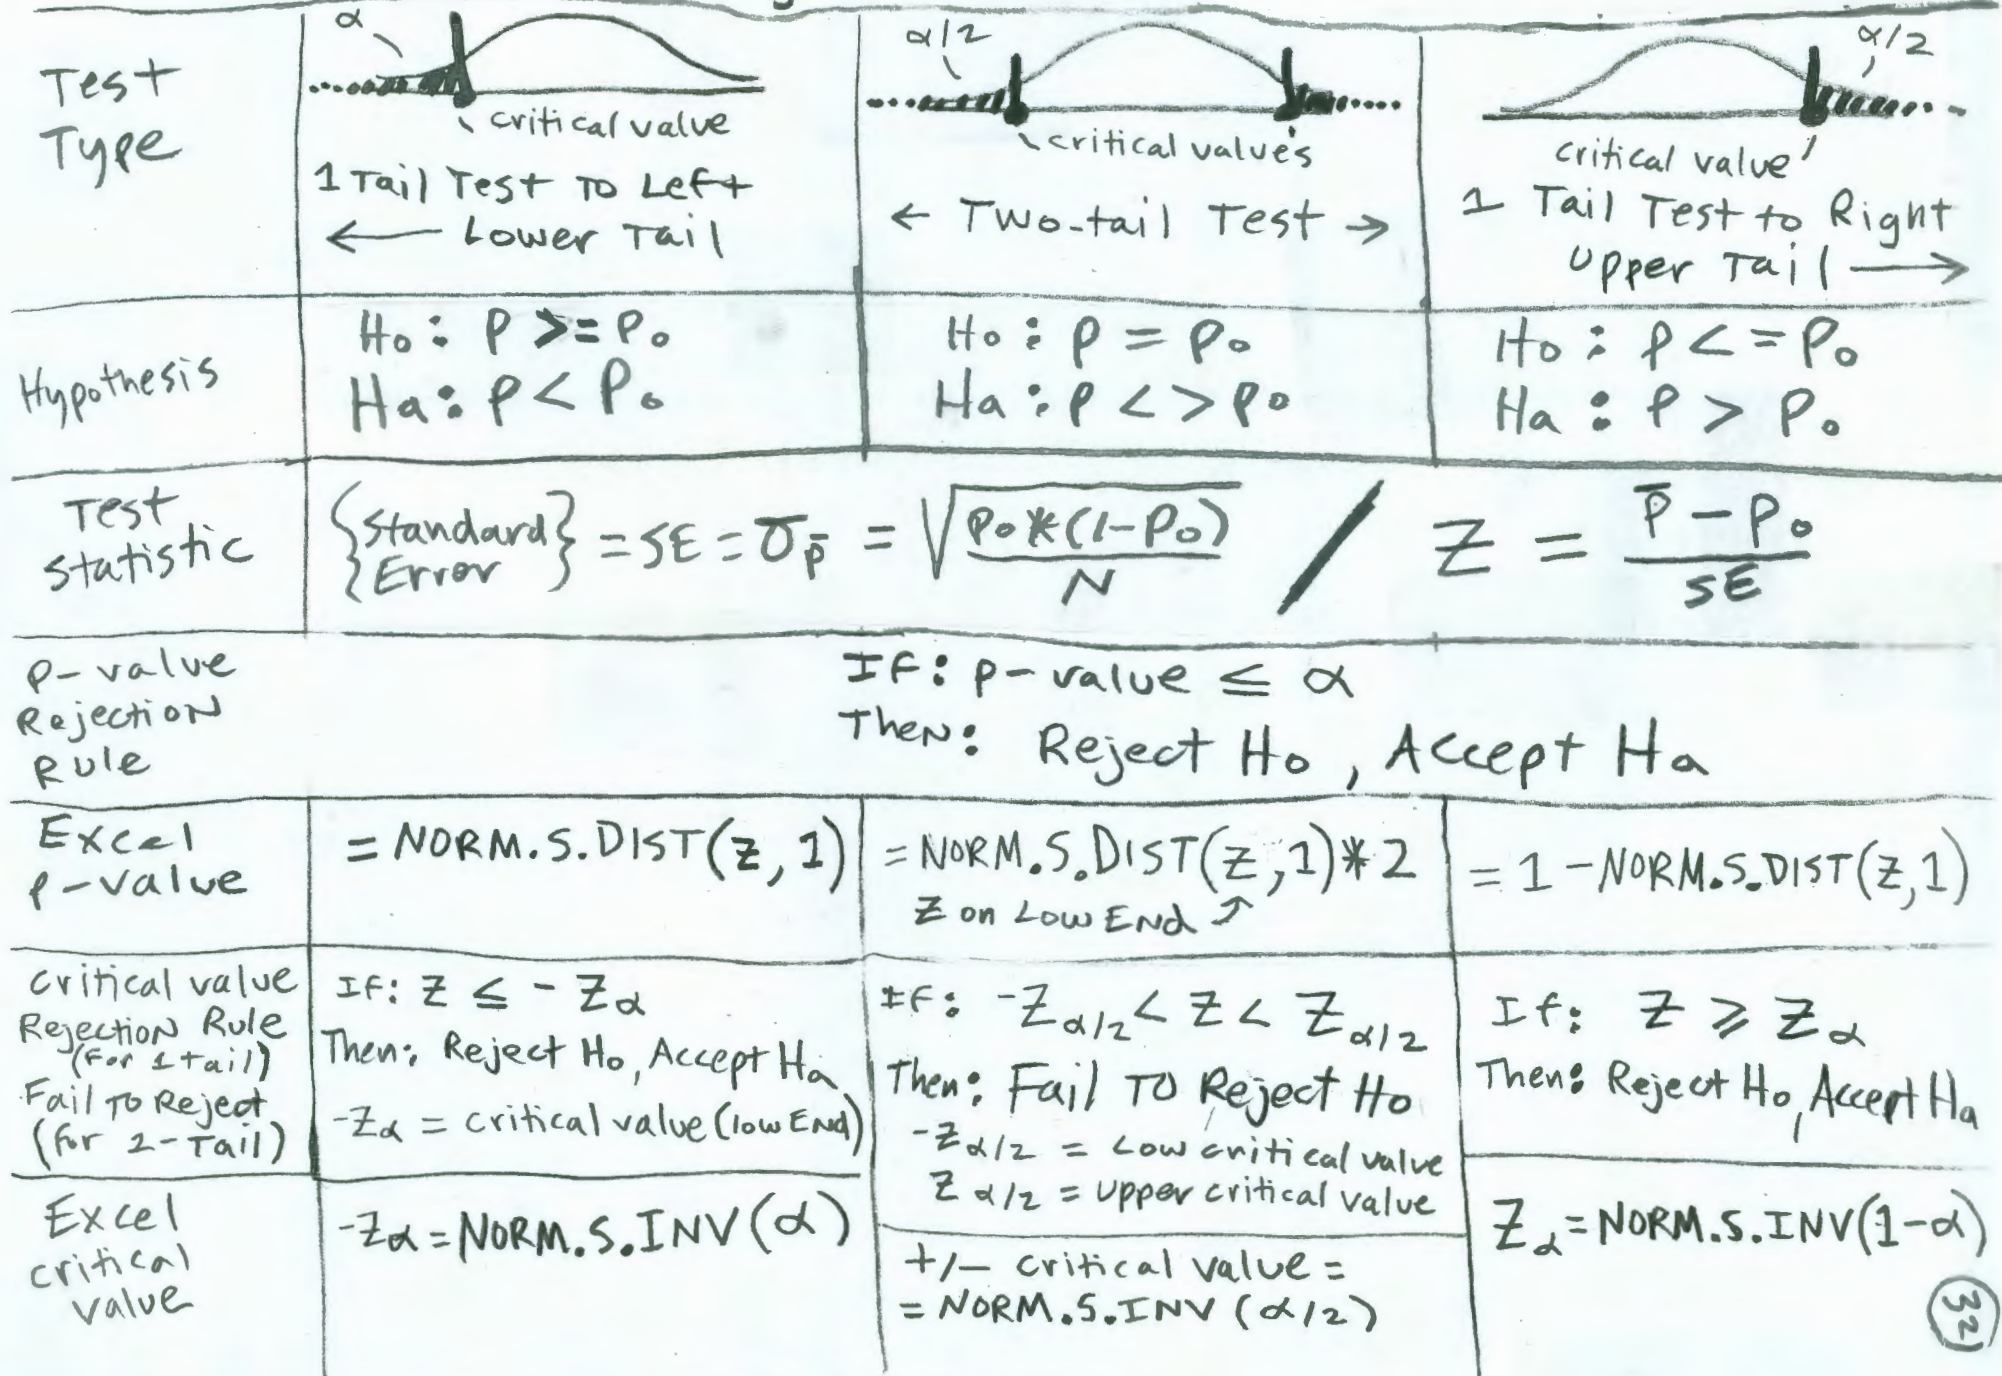 Test
Type
α
critical value
1 Tail Test To Left
← Lower Tail
α/2
critical value's
← Two-tail Test →
α/2
critical value
1 Tail Test to Right
Upper Tail →
Hypothesis
Ho: P >= Po
Ha: P < Po
Ho: P = Po
Ha: P <> Po
Ho: P <= Po
Ha: P > Po
Test
Statistic
{Standard Error} = SE = σp̄ = √(Po*(1-Po)/N) / Z = (P̄ - Po)/SE
P-value
Rejection
Rule
If: p-value ≤ α
Then: Reject Ho, Accept Ha
Excel
p-value
= NORM.S.DIST(z, 1)
= NORM.S.DIST(z,1)*2
Z on Low End ↗
= 1 - NORM.S.DIST(z,1)
Critical value
Rejection Rule
(For 1 tail)
Fail To Reject
(for 2-Tail)
If: Z ≤ -Zα
Then: Reject Ho, Accept Ha
-Zα = critical value (low End)
If: -Zα/2 < Z < Zα/2
Then: Fail To Reject Ho
-Zα/2 = Low critical value
Zα/2 = upper critical value
If: Z ≥ Zα
Then: Reject Ho, Accept Ha
Excel
critical
value
-Zα = NORM.S.INV(α)
+/- critical value =
= NORM.S.INV (α/2)
Zα = NORM.S.INV(1-α)
32